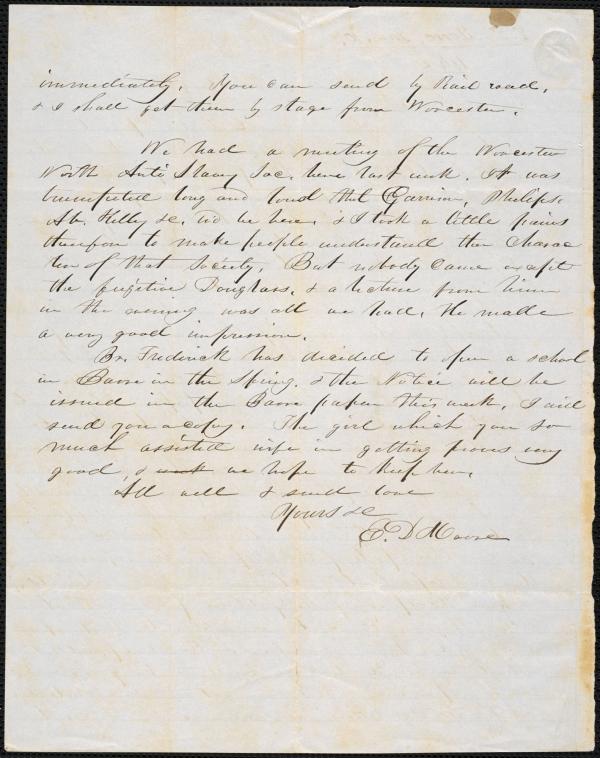 immediately. You can send by Rail road,
& I shall get them by stage from Worcester.
We had a meeting of the Worcester
North Anti Slavery Soc. here last week. It was
trumpeted long and loud that Garrison, Philips,
Ab. Kelley &c. wd be here, & I took a little pains
therefore to make people understand the charac
ter of that Society. But nobody came except
the fugitive Douglass, & a lecture from him
in the evening was all we had. He made
a very good impression.
Br. Frederick has decided to open a school
in Barre in the Spring, & the Notice will be
issued in the Barre paper this week. I will
send you a copy. The girl which you so
much assisted wife in getting proves very
good, & we hope to keep her.
All well & send love
Yours &c
E. D Moore